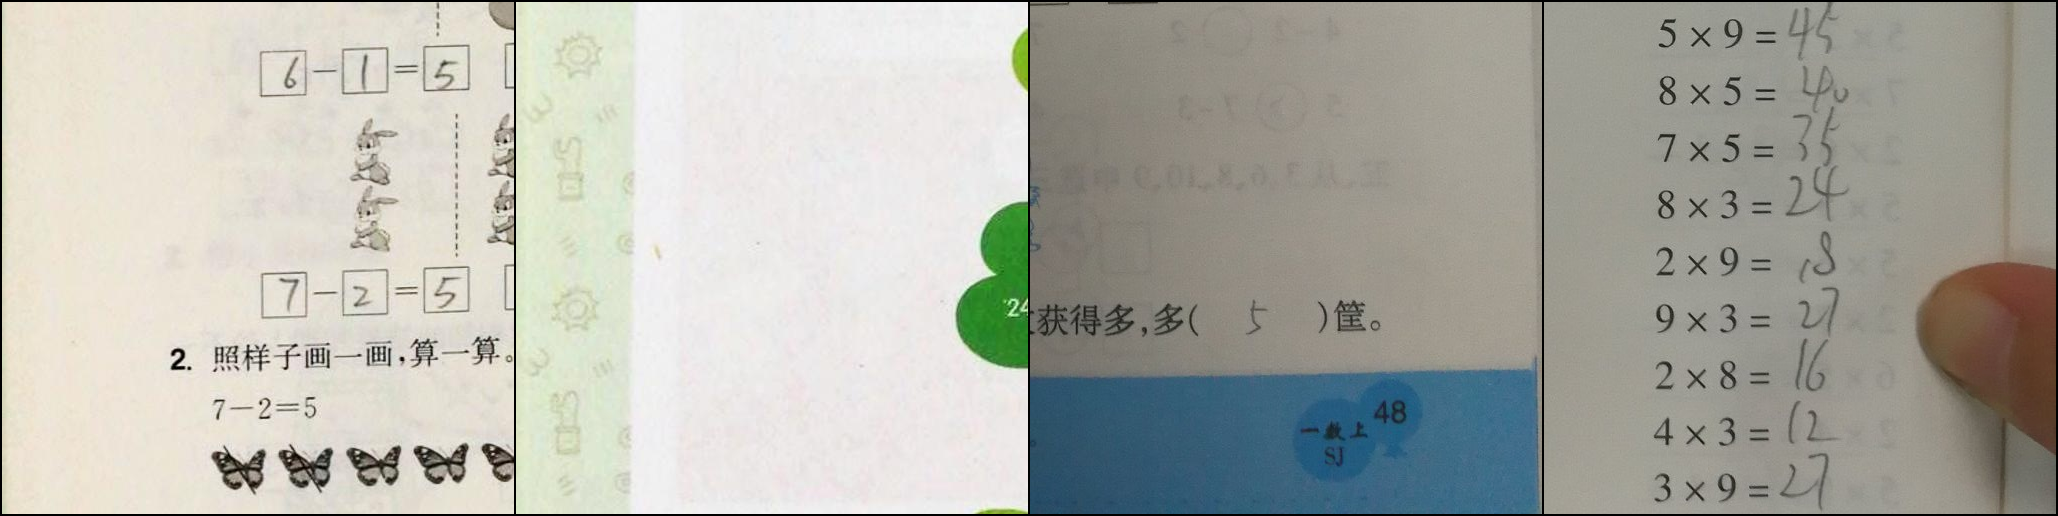 6-1=5
7-2=5
2. 照样子画一画,算一算。
7-2=5
24
获得多,多( 5 )筐。
48
一数上
SJ
5×9=45
8×5=40
7×5=35
8×3=24
2×9=18
9×3=27
2×8=16
4×3=12
3×9=27